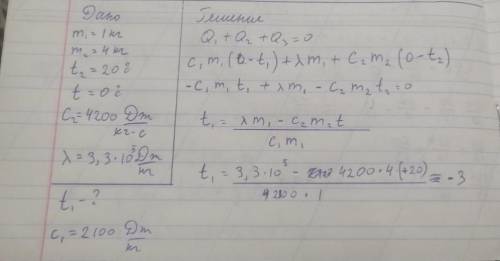 Дано
m₁ = 1 кг
m₂ = 4 кг
t₂ = 20°C
t = 0°C
C₂ = 4200 Дж/кг·с
λ = 3,3·10⁵ Дж/кг
t₁ - ?
c₁ = 2100 Дж/кг
Решение
Q₁ + Q₂ + Q₃ = 0
C₁ m₁ (0 - t₁) + λ m₁ + C₂ m₂ (0 - t₂)
-C₁ m₁ t₁ + λ m₁ - C₂ m₂ t₂ = 0
t₁ = (λ m₁ - C₂ m₂ t) / (C₁ m₁)
t₁ = (3,3·10⁵ - 4200·4 (+20)) / (2100·1) = -3